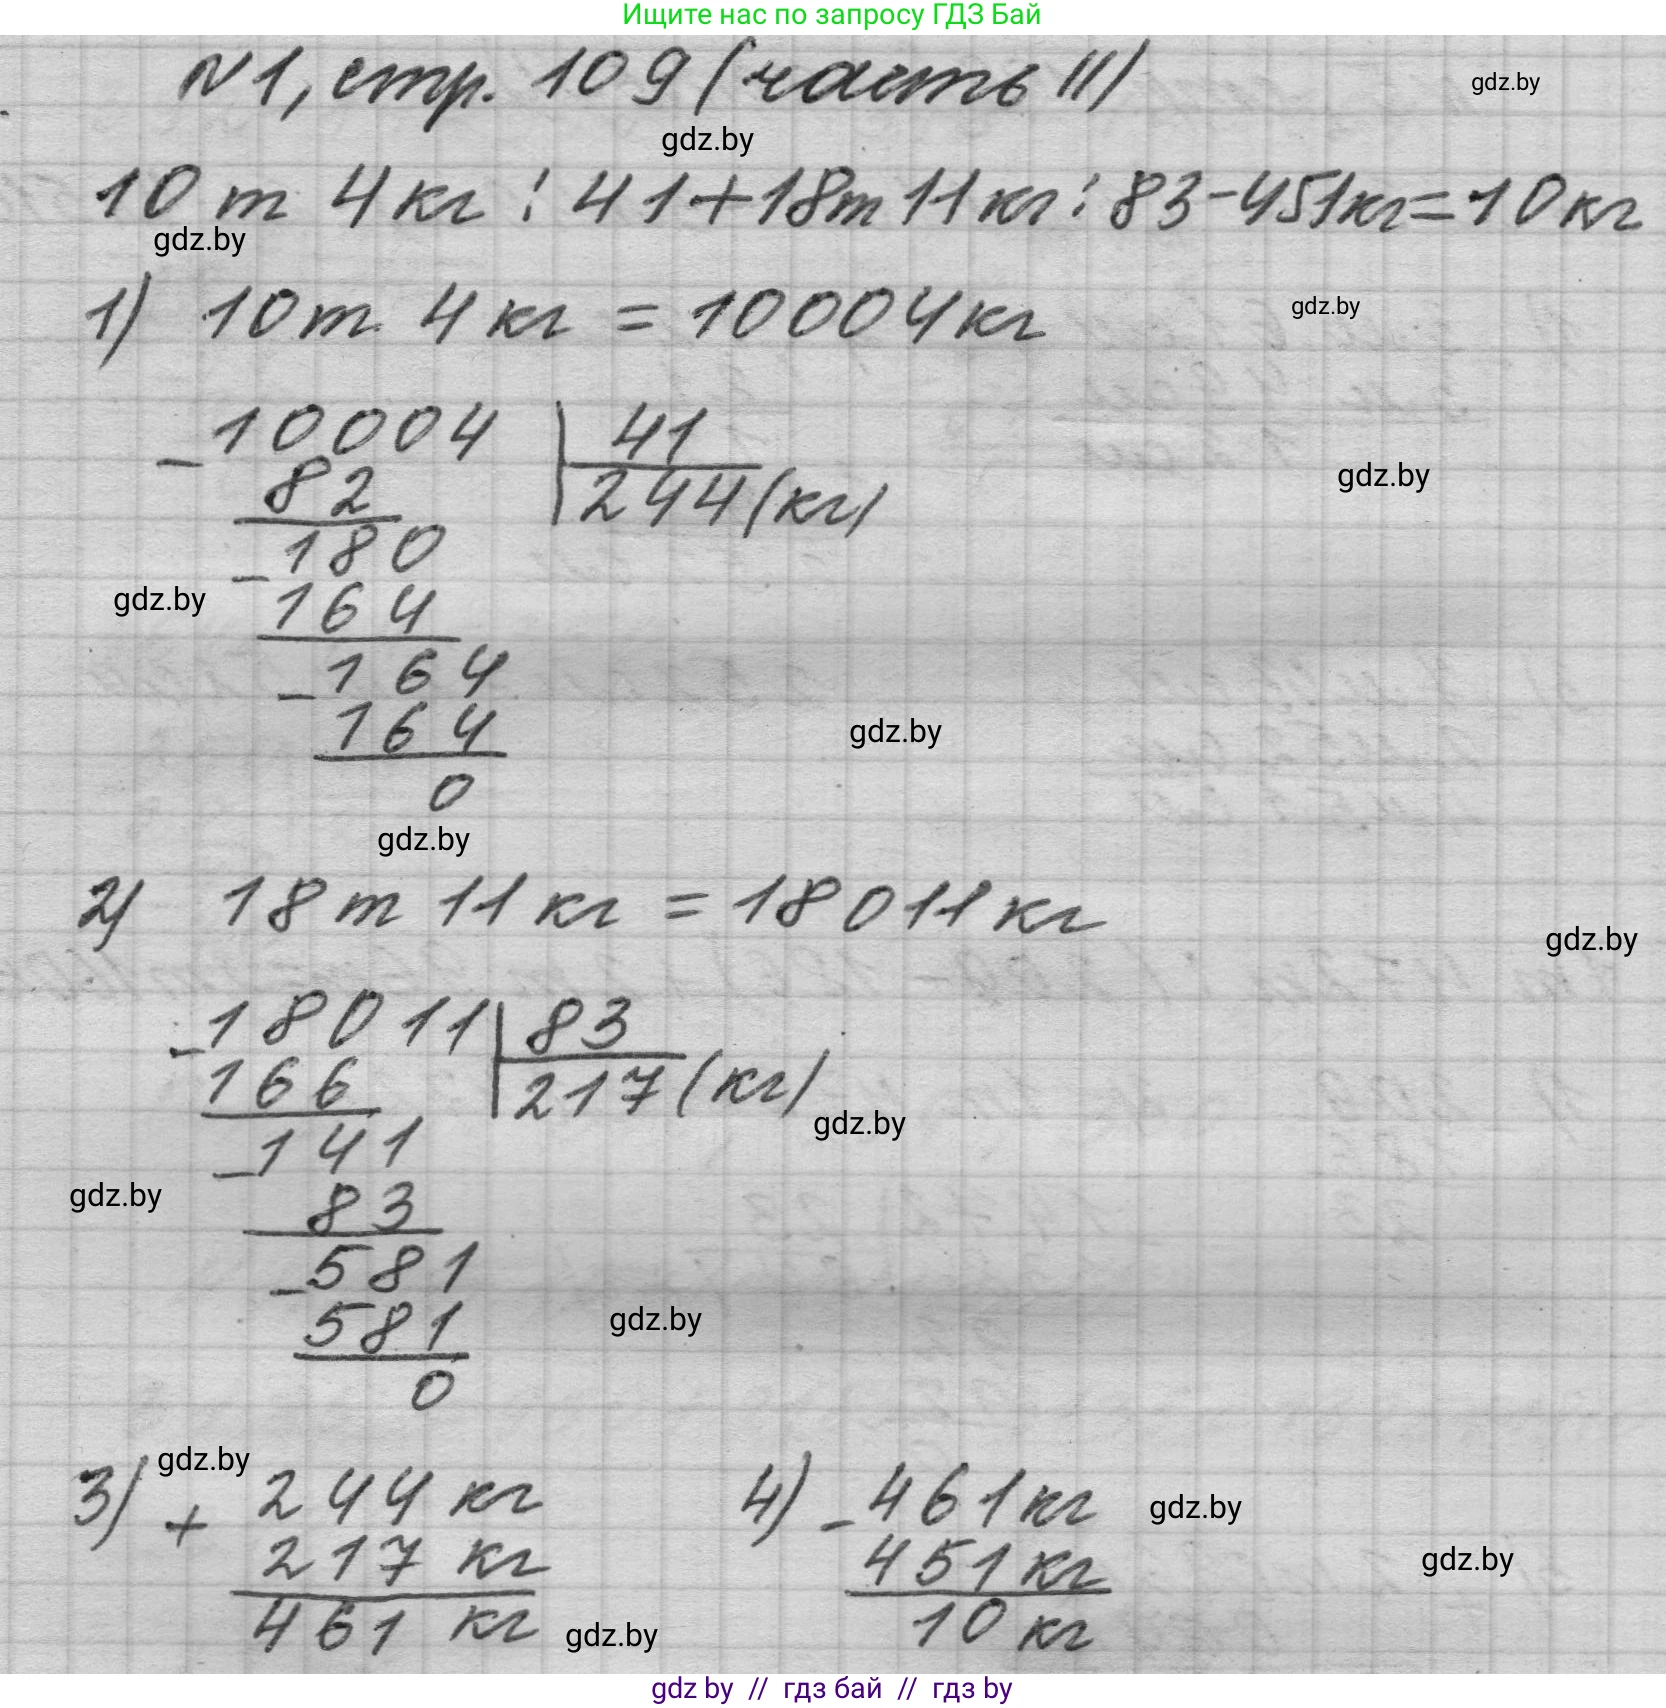 Ищите нас по запросу ГДЗ Бай
№1, стр. 109 (часть II)
gdz.by
gdz.by
10 т 4 кг : 41 + 18 т 11 кг : 83 - 451 кг = 10 кг
gdz.by
1) 10 т 4 кг = 10004 кг
gdz.by
- 10004 | 41
82 | 244 (кг)
gdz.by
- 180
164
gdz.by
- 164
164
gdz.by
0
gdz.by
2) 18 т 11 кг = 18011 кг
gdz.by
- 18011 | 83
166 | 217 (кг)
gdz.by
- 141
83
gdz.by
- 581
581
gdz.by
0
gdz.by
3) + 244 кг
217 кг
461 кг
gdz.by
4) - 461 кг
451 кг
10 кг
gdz.by
gdz.by
gdz by // гдз бай // гдз by